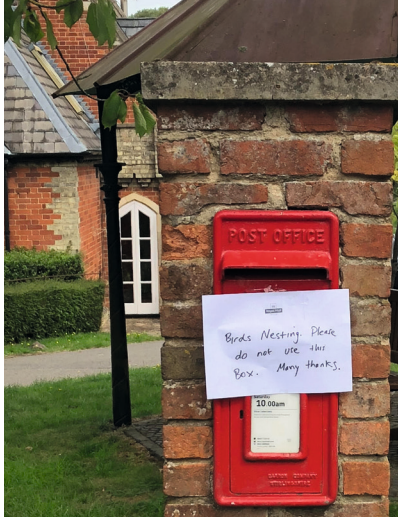 POST OFFICE
Birds Nesting. Please
do not use this
Box. Many thanks.
Saturday
10 00am